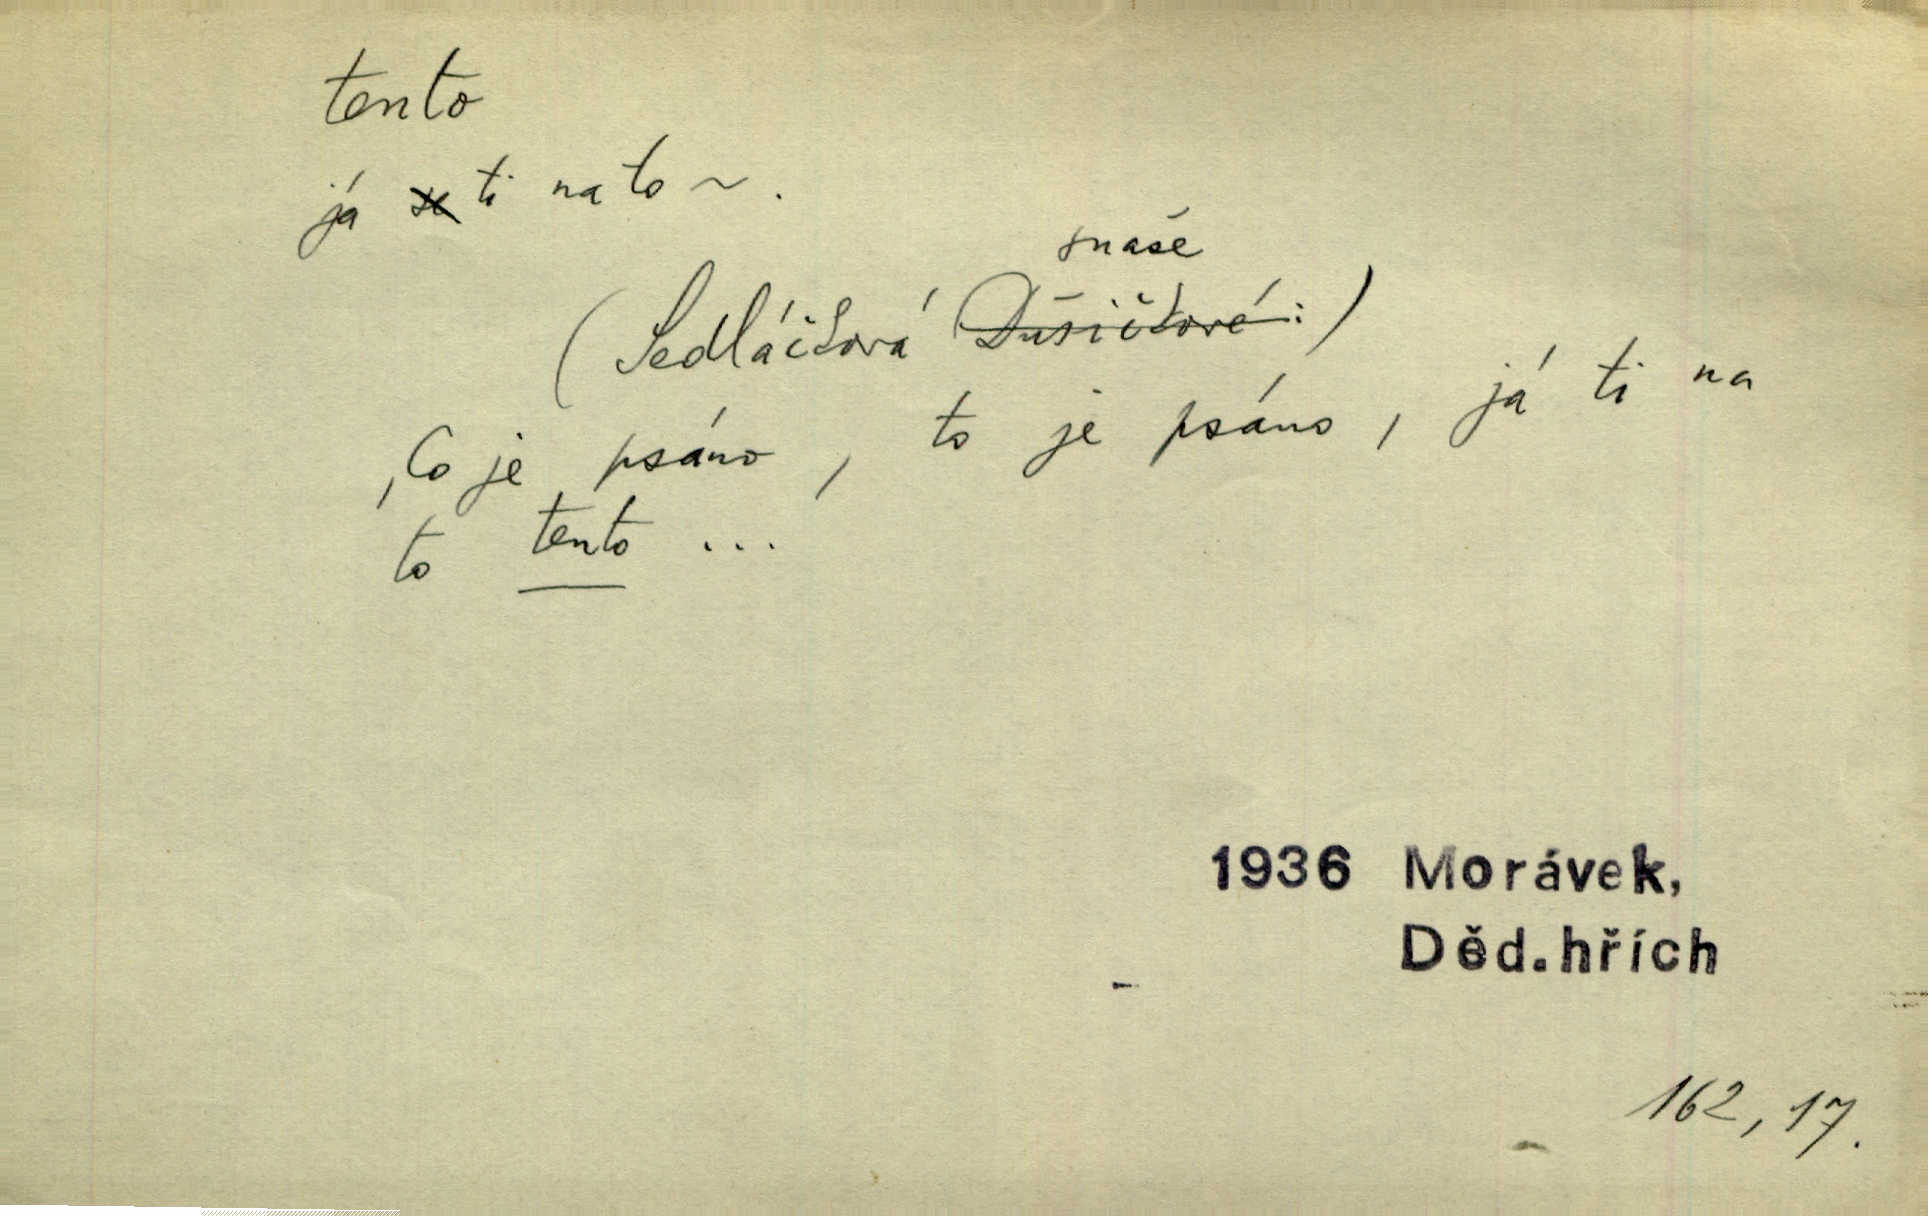 tento
já se ti na to ~.
snaše
(Sedláčková Dušičkové:)
‚Co je psáno, to je psáno, já ti na
to tento ...
1936 Morávek,
Děd.hřích
162, 17.